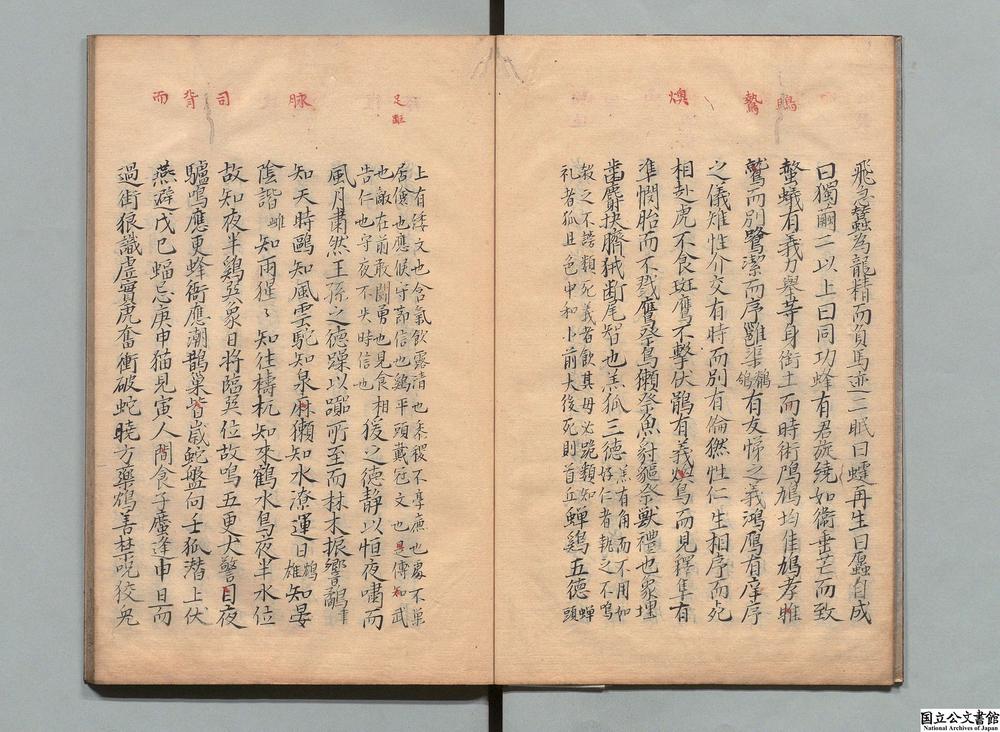 鴟 鷙
燠
飛忽蠶為龍精而負馬迹二眠曰蠖再生曰蠱自成
曰獨繭二以上曰同功蜂有君旋繞如衛垂芒而致
螫蟻有義力舉等身銜土而時術鳲鳩均佳鳩孝雎
鷲而別鷺潔而序雝渠鶺鴒有友悌之義鴻鴈有序序
之儀雉性介交有時而別有倫猶性仁生相序而死
相赴虎不食斑鷹不擊伏鶻有義燠鳥而見釋隼有
準憫胎而不戮鷹祭鳥獺祭魚豺貙祭獸禮也象埋
齒麝抉臍狨斷尾智也羔狐三德羔有角而不用如好仁者執之不鳴
殺之不諦類死義者飲其母必跪類知禮者狐且色中和小前大後死則首丘蟬鷄五德蟬頭
足 距
脉
司
背
而
上有緌文也含氣飲露清也黍稷不享廉也處不巢
居儉也應候守節信也鷄平頭戴冠文也足傅知武
也敵在前敢鬪勇也見食相
告仁也守夜不失時信也猨之德靜以恒夜嘯而
風月肅然王孫之德躁以躁所至而林木振響鷸
知天時鷗知風雲駝知泉麻獺知水潦運日鴆雄知晏
陰諧雌知雨猩〻知往檮杌知來鶴水鳥夜半水位
故知夜半鷄巽象日將臨巽位故鳴五更犬警目夜
驢鳴應更蜂衙應潮鵲巢皆歲蛇盤向壬狐潛上伏
燕避戊巳蝠忌庚申猫見寅人間食子麈逢申日而
過街狼識虛實虎奮衝破蛇曉方藥鴆善禁呪狡兔
国立公文書館
National Archives of Japan